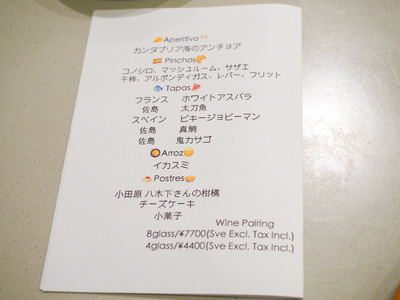 🫓Aperitivo🥂
カンタブリア海のアンチョア
🇪🇸Pinchos🥐
コノシロ、マッシュルーム、サザエ
干柿、アルボンディガス、レバー、フリット
🐟Tapas🍖
フランス ホワイトアスパラ
佐島 太刀魚
スペイン ビキージョピーマン
佐島 真鯛
佐島 鬼カサゴ
🥘Arroz🍋
イカスミ
☕Postres🥧
小田原 八木下さんの柑橘
チーズケーキ
小菓子
Wine Pairing
8glass/¥7700(Sve Excl. Tax Incl.)
4glass/¥4400(Sve Excl. Tax Incl.)